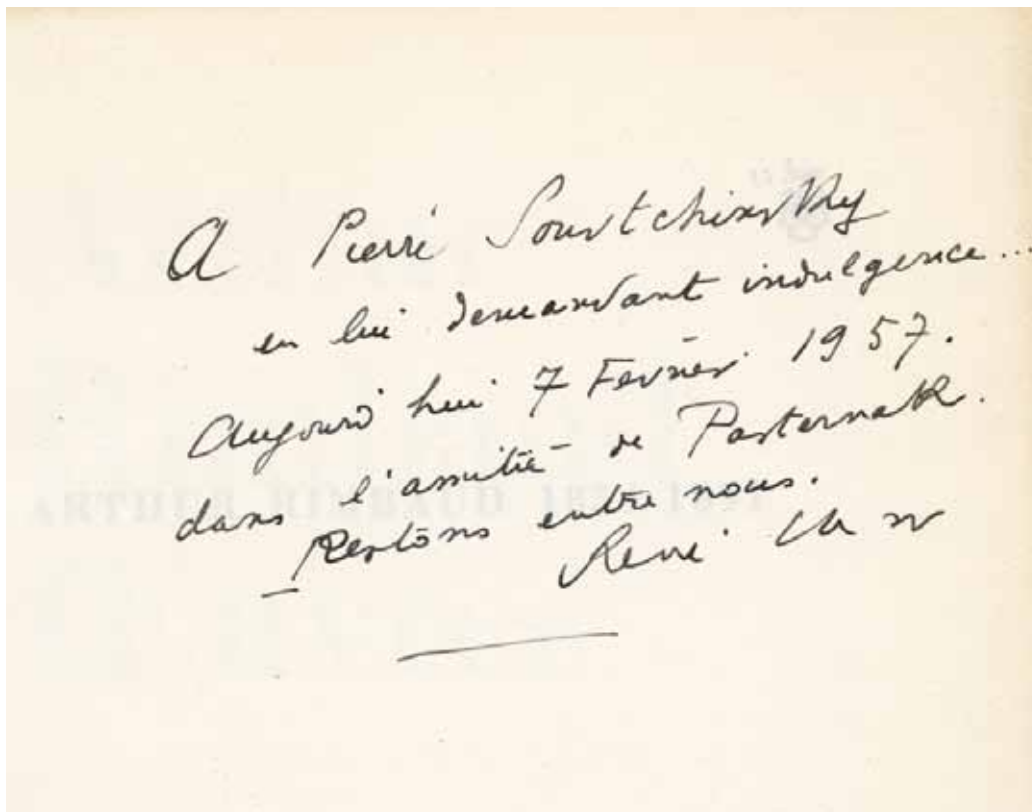 A Pierre Souvtchinsky
en lui demandant indulgence...
Aujourd'hui 7 Février 1957.
dans l'amitié de Pasternak.
Restons entre nous.
René Char
ARTHUR RIMBAUD